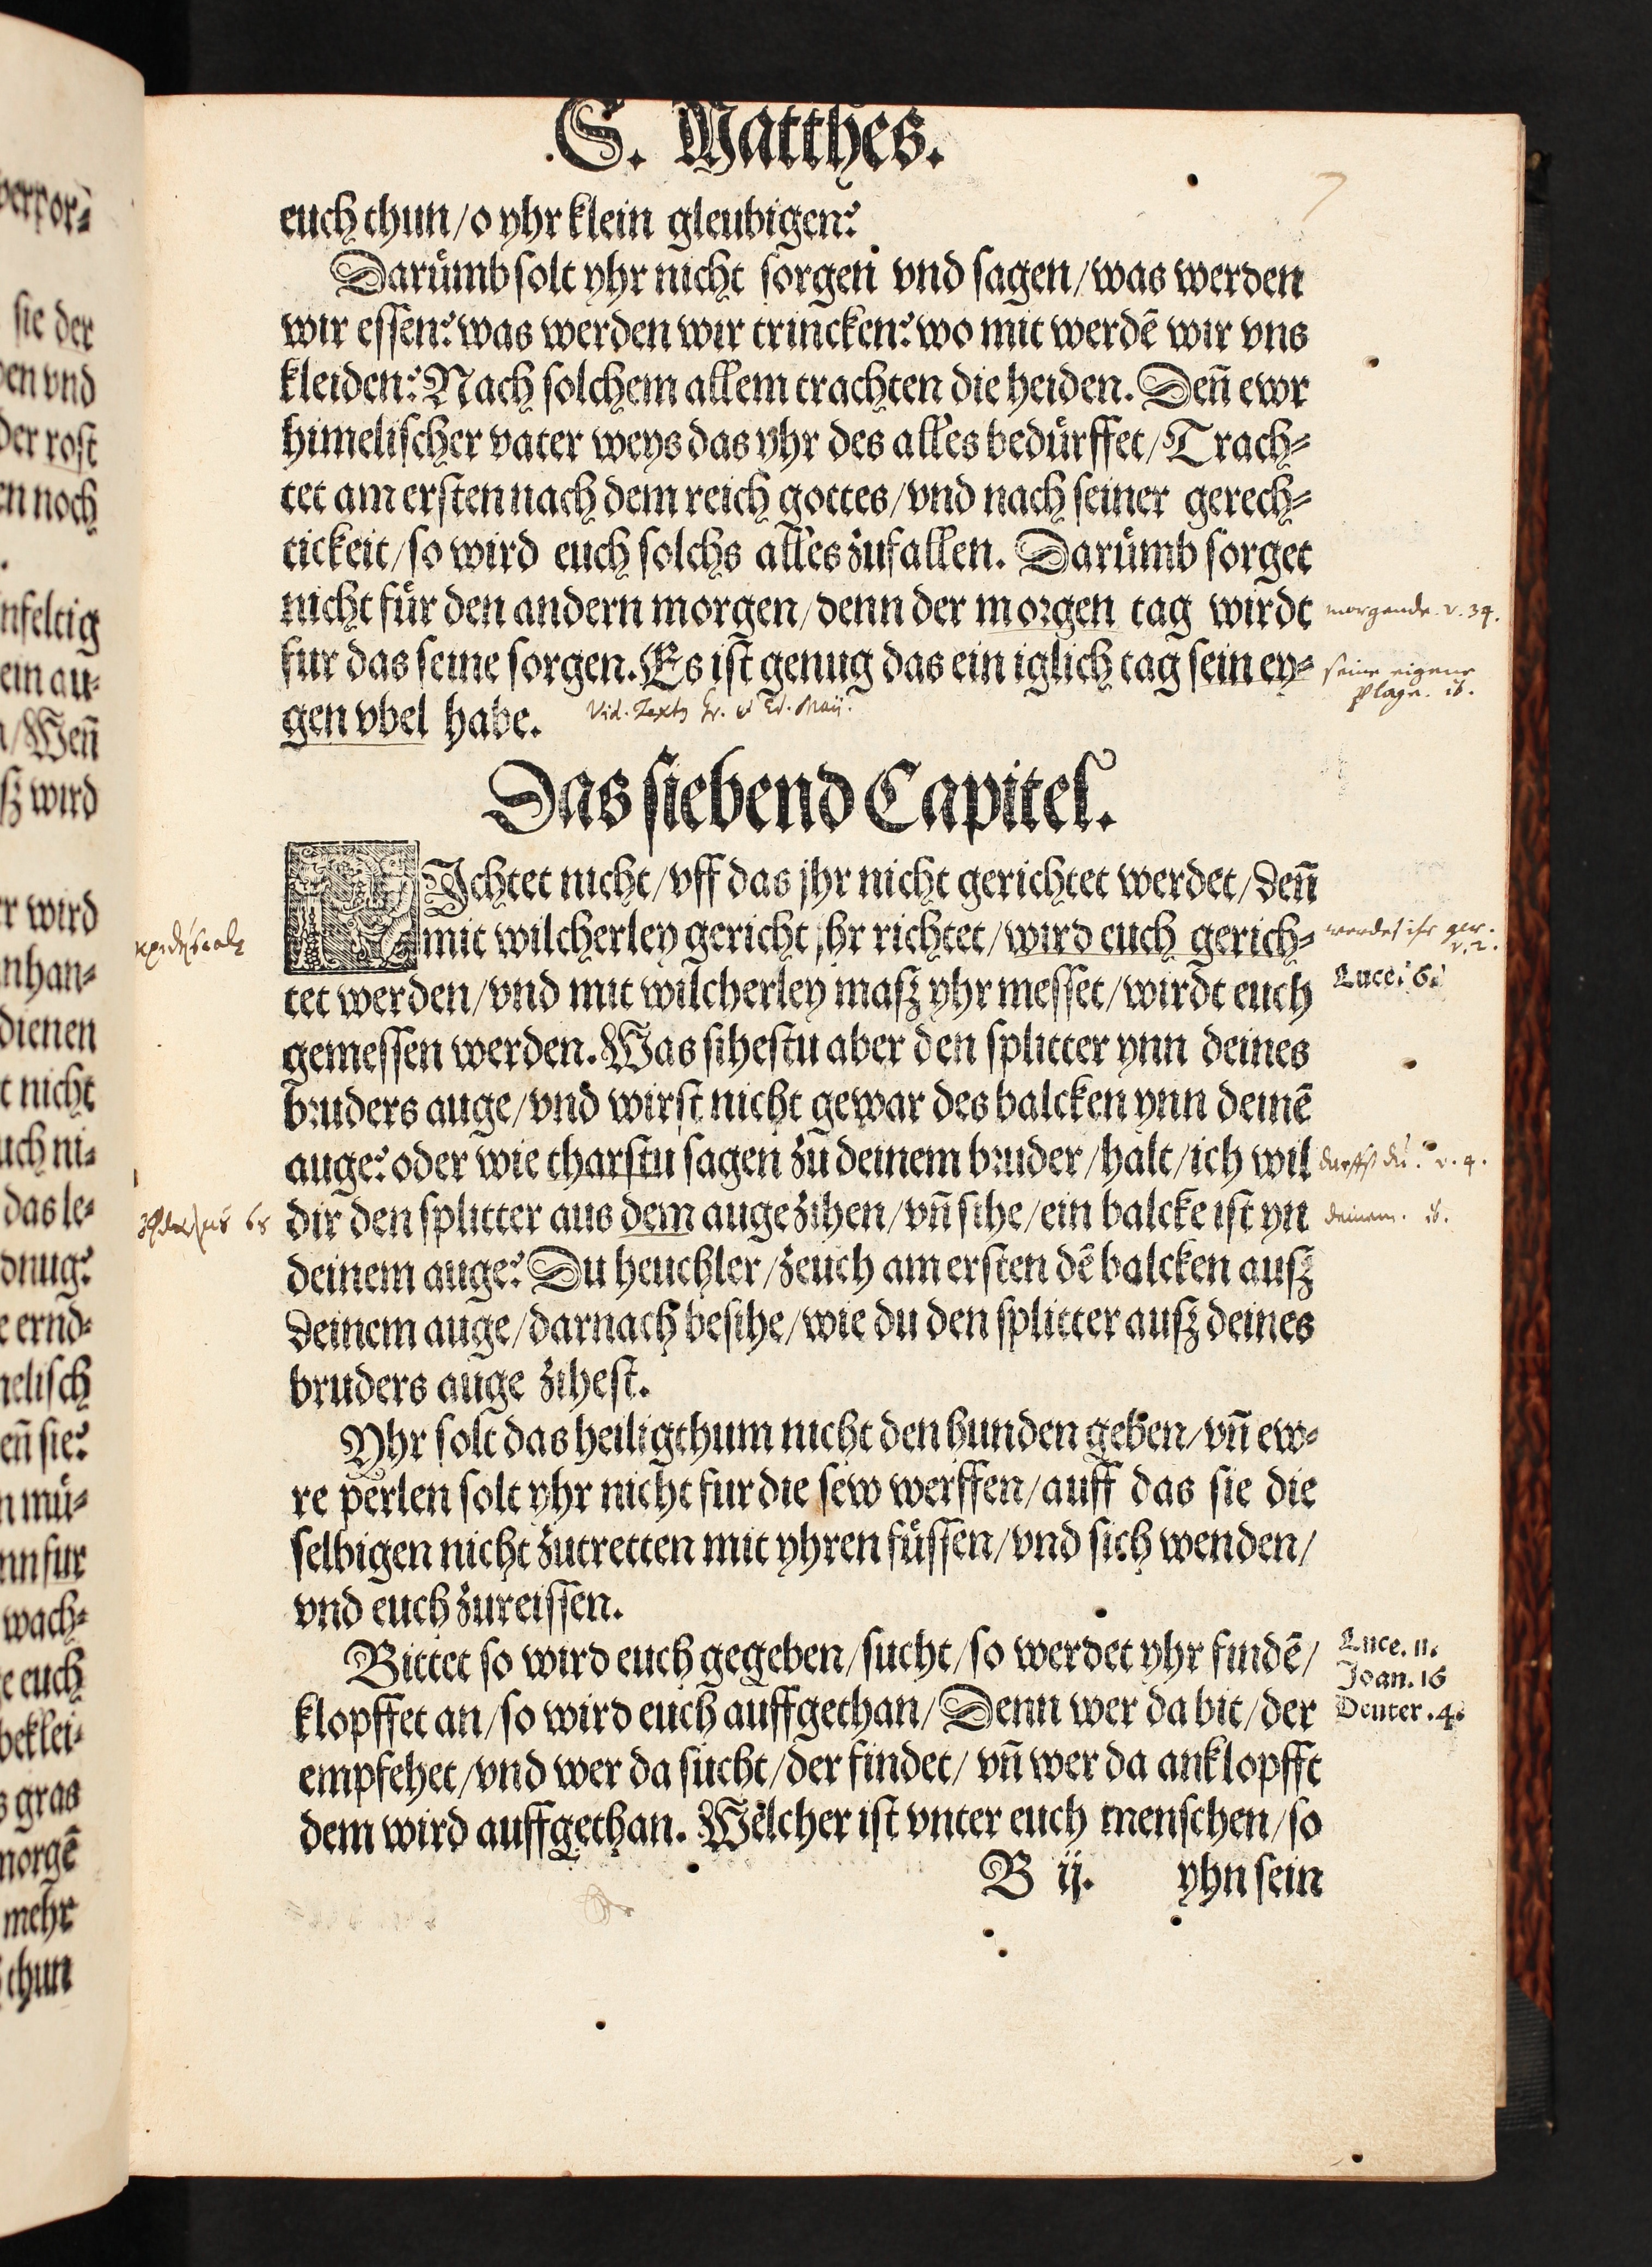 S. Matthes.
7
euch thun/o yhr klein gleubigen?
Darümb solt yhr nicht sorgen vnd sagen/was werden
wir essen? was werden wir trincken? wo mit werdē wir vns
kleiden? Nach solchem allem trachten die heiden. Deñ ewr
himelischer vater weys das yhr des alles bedürffet/Trach⸗
tet am ersten nach dem reich gottes/vnd nach seiner gerech⸗
tickeit/so wird euch solchs alles zufallen. Darümb sorget
nicht für den andern morgen/denn der morgen tag wirdt
morgende v. 34.
fur das seine sorgen. Es ist genug das ein iglich tag sein ey⸗
seine eigene
plage. ib.
gen vbel habe.
Vid. Maij.
Das siebend Capitel.
RIchtet nicht/vff das jhr nicht gerichtet werdet/denñ
mit wilcherley gericht jhr richtet/wird euch gerich⸗
werdet ihr ger.
v. 2.
Luce. 6.
tet werden/vnd mit wilcherley masz yhr messet/wirdt euch
gemessen werden. Was sihestu aber den splitter ynn deines
bruders auge/vnd wirst nicht gewar des balcken ynn deinē
auge? oder wie tharstu sagen zu deinem bruder/halt/ich wil
darffst du. v. 4.
dir den splitter aus dem auge zihen/vñ sihe/ein balcke ist yn
deinem. ib.
deinem auge? Du heuchler/zeuch am ersten dē balcken ausz
deinem auge/darnach besihe/wie du den splitter ausz deines
bruders auge zihest.
Yhr solt das heiligthum nicht den hunden geben/vñ ew⸗
re perlen solt yhr nicht fur die sew werffen/auff das sie die
selbigen nicht zutretten mit yhren füssen/vnd sich wenden/
vnd euch zureissen.
Bittet so wird euch gegeben/sucht/so werdet yhr findē/
Luce. 11.
Joan. 16
klopffet an/so wird euch auffgethan/Denn wer da bit/der
Deuter. 4.
empfehet/vnd wer da sucht/der findet/vñ wer da anklopfft
dem wird auffgethan. Welcher ist vnter euch menschen/so
B ij.
yhn sein